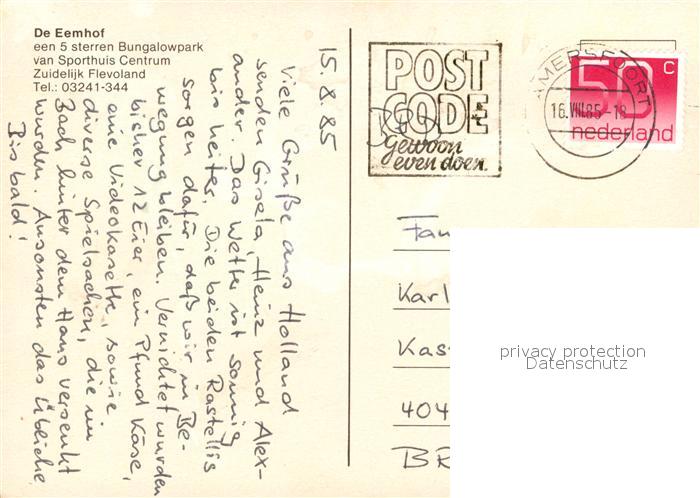 De Eemhof
een 5 sterren Bungalowpark
van Sporthuis Centrum
Zuidelijk Flevoland
Tel.: 03241-344
15.8.85
Viele Grüße aus Holland
senden Gisela, Heinz und Alex-
ander. Das Wetter ist sonnig
bis heiter. Die beiden Rastellis
sorgen dafür, daß wir in Be-
wegung bleiben. Vernichtet wurden
bisher 12 Eier, ein Pfund Käse,
eine Videokasette, sowie
diverse Spielsachen, die im
Bach hinter dem Haus versenkt
wurden. Ansonsten das Übliche
Bis bald!
POST
CODE
gewoon
even doen.
BRD
AMERSFOORT
16.VIII.85-18
50 c
nederland
Fam
Karl
Kas
404
BR
privacy protection
Datenschutz